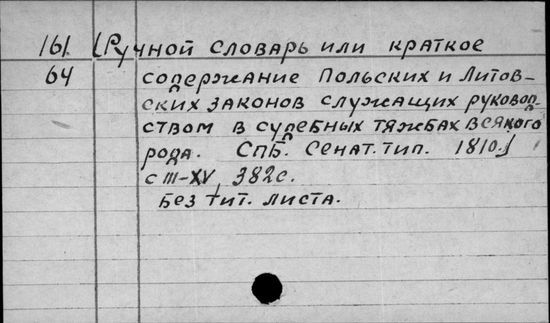 161. [Ручной словарь или краткое
64 содержание польских и литов-
ских законов служащих руковод-
ством в судебных тяжбах всякого
рода. СПБ. Сенат. тип. 1810.]
с III-XV, 382с.
Без тит. листа.